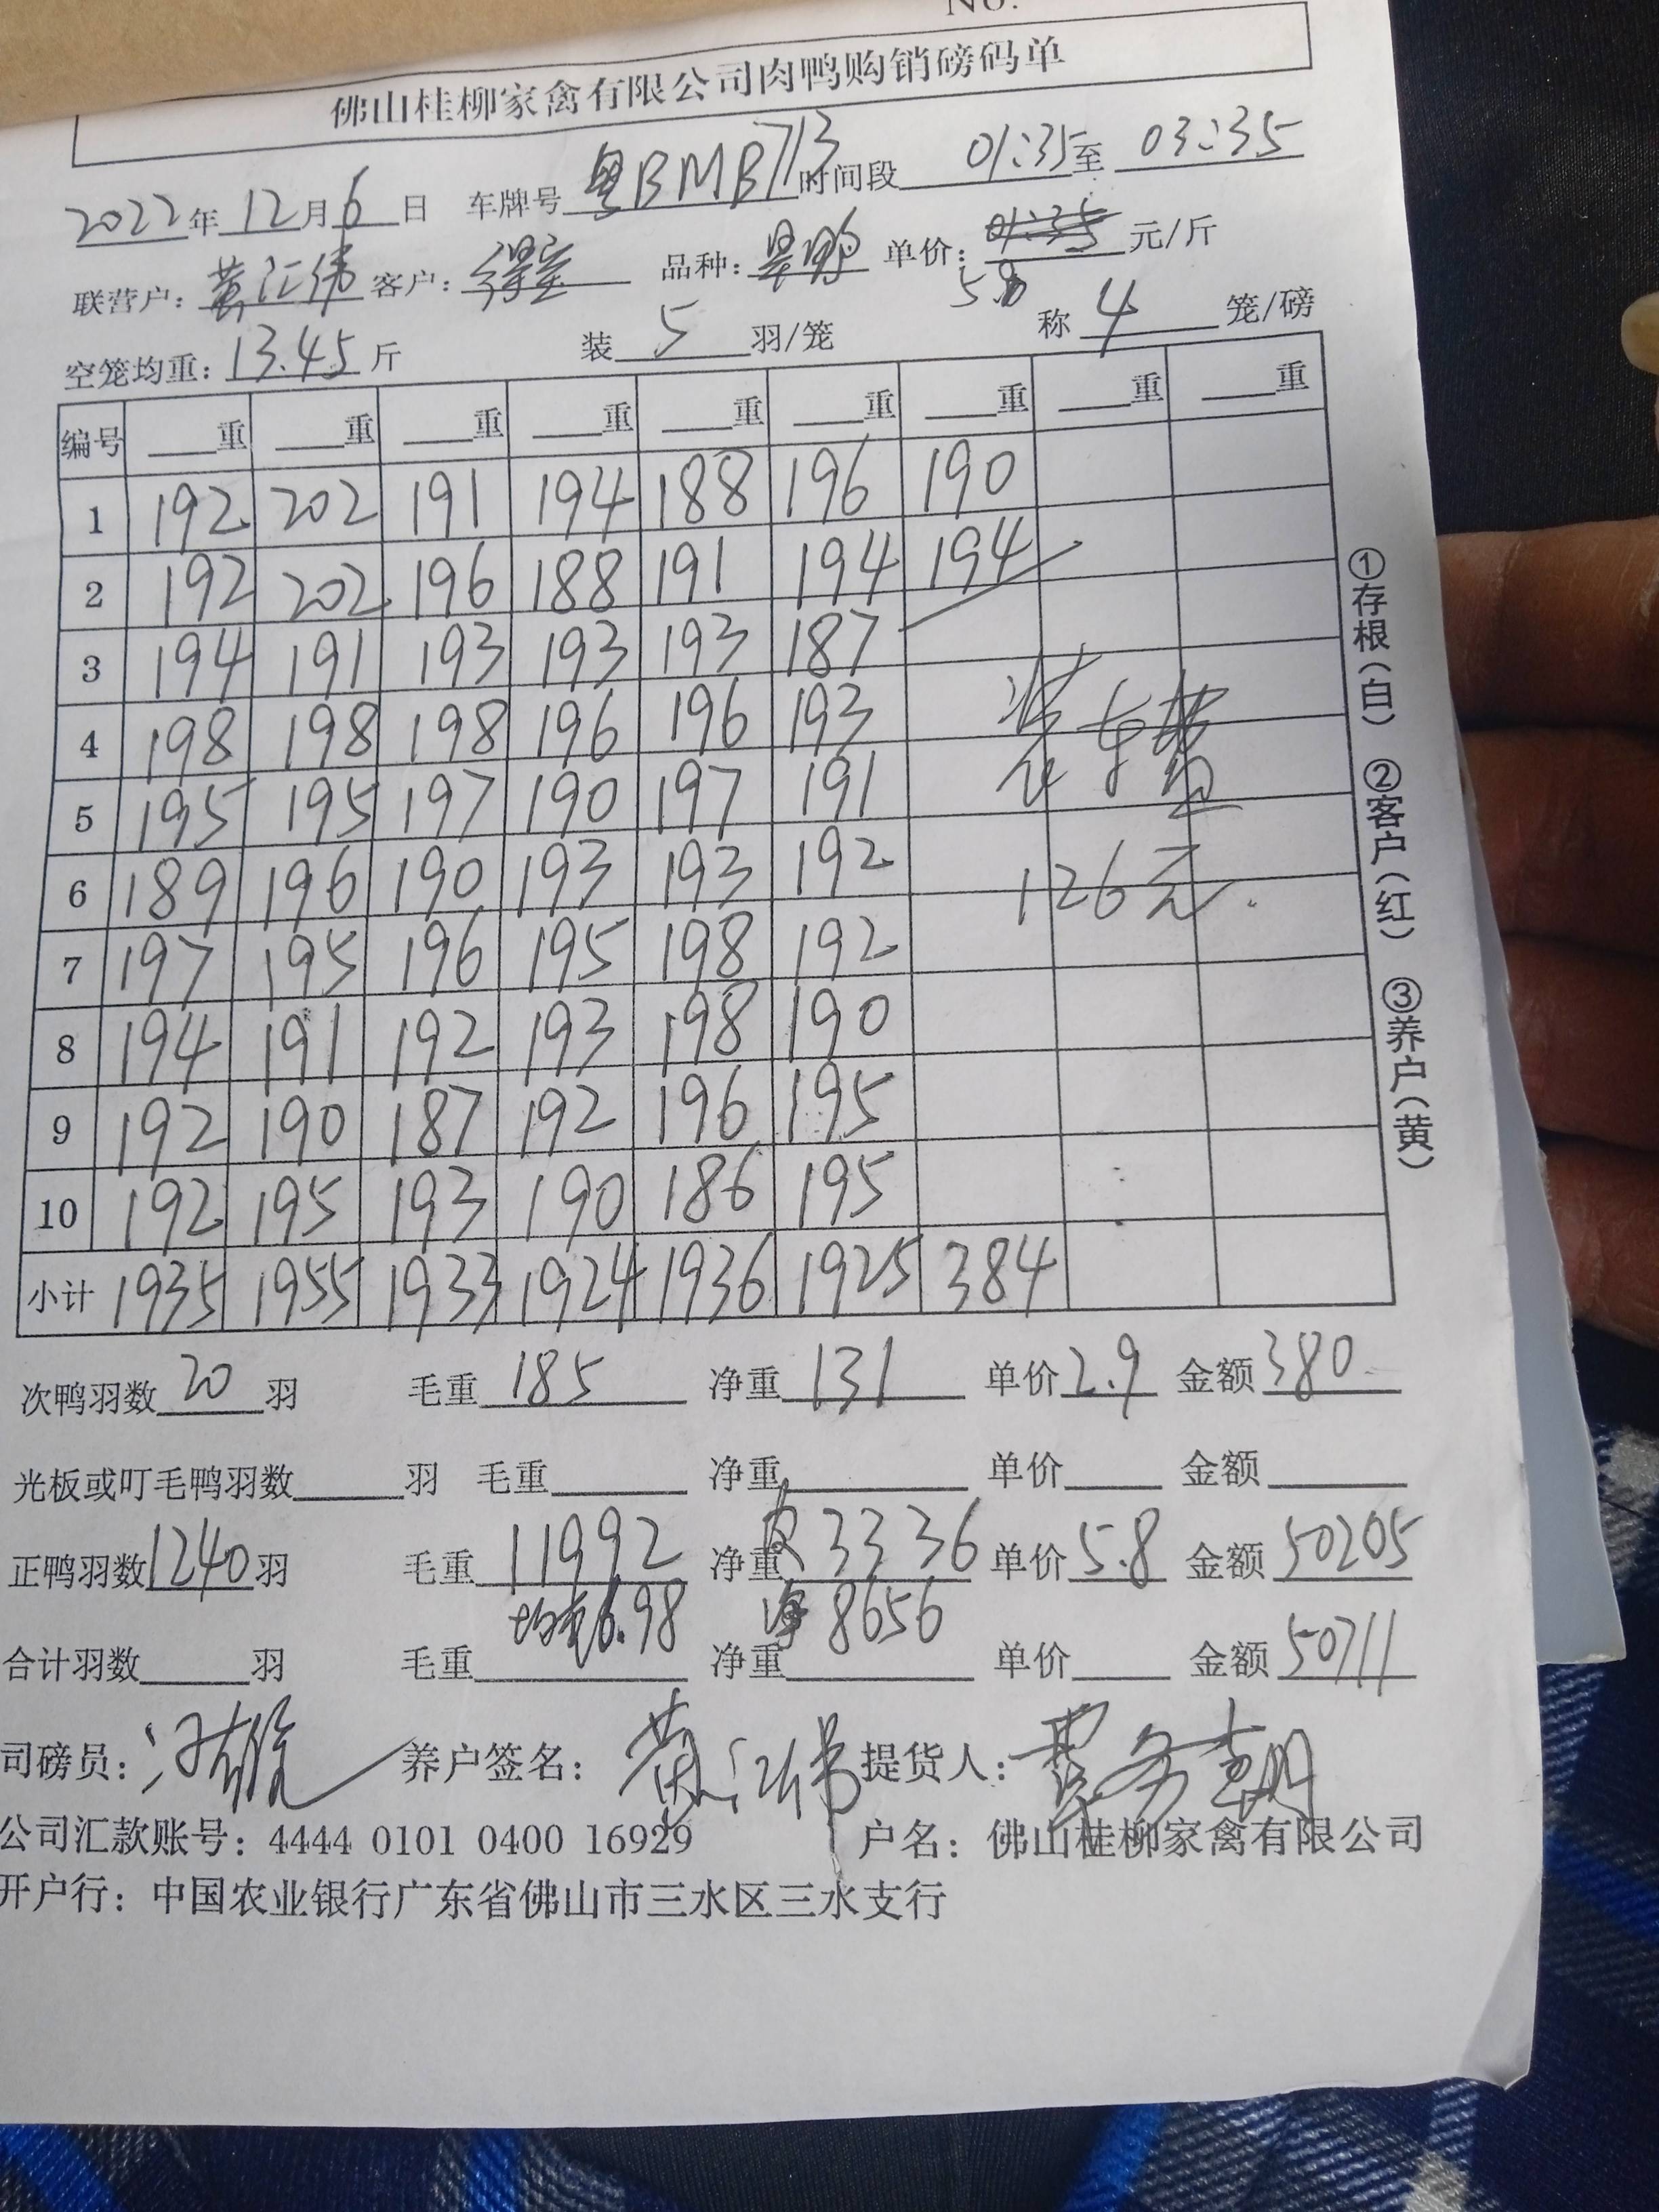 No.
佛山桂柳家禽有限公司肉鸭购销磅码单
2022年12月6日 车牌号粤BMB713时间段01:35至03:35
联营户：黄江伟 客户： 品种： 单价：01:35元/斤
5.8
空笼均重：13.45斤 装5羽/笼 称4笼/磅
编号 重 重 重 重 重 重 重 重 重
1 192 202 191 194 188 196 190
2 192 202 196 188 191 194 194
3 194 191 193 193 193 187
4 198 198 198 196 196 193
5 195 195 197 190 197 191
装车费
6 189 196 190 193 193 192
126元.
7 197 195 196 195 198 192
8 194 191 192 193 198 190
9 192 190 187 192 196 195
10 192 195 193 190 186 195
小计 1935 1955 1933 1924 1936 1925 384
次鸭羽数20羽 毛重185 净重131 单价2.9 金额380
光板或叮毛鸭羽数羽 毛重 净重 单价 金额
正鸭羽数1240羽 毛重11992 净重皮3336 单价5.8 金额50205
均重6.98 净8656
合计羽数羽 毛重 净重 单价 金额50711
司磅员： 养户签名：黄江伟 提货人：
公司汇款账号：4444 0101 0400 16929 户名：佛山桂柳家禽有限公司
开户行：中国农业银行广东省佛山市三水区三水支行
①存根（白） ②客户（红） ③养户（黄）